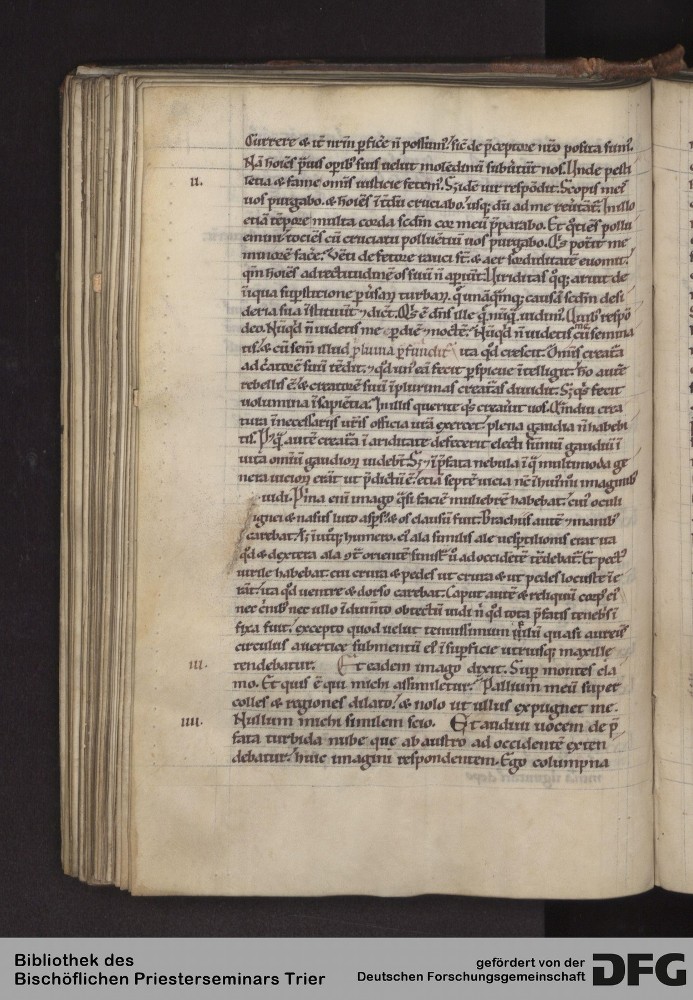 Currere & it̄ nr̄m ꝑfice n̄ possum᷒. sic̄ de p̄ceptore nr̄o posita sum᷒.
Nā hoīes p̄uis opib᷒ suis uelut molēdinū subūtūt nos. Unde pesti
II. lētia & fame omīs iusticie fetem᷒. S; idē uir respōdit. Scopis meis
uos purgabo. & hoīes ītdū cruciabo. usq; dū ad me reūtāt̄. In illo
etiā tēpore multa corda scdm̄ cor meū p̄parabo. Et q̊tiēs pollu
emini. tociēs cū cruciatu polluētiū uos purgabo. Q̊s potit me
minorē facē. Vēti de fetore rauci st̄. & aer sordiditatē euomit.
qm̄ hoīes ad rectitudinē os suū n̄ apiūt. Uiriditas q̊q; aruit de
iniqua suꝑstitione ꝑuersaꝝ turbaꝝ. que unāquāq; causā scdm̄ desi
deria sua īstituūt & dicūt. Q̊s ē dn̄s ille quē nūq̄ uidim᷒. Quib᷒ respō
deo. Nūq̊d n̄ uidetis me ꝑ diē & noctē. Nūq̊d n̄ uidetis me cū semina
tis. & cū sem̄ illud pluuia ꝑfundit᷒ ita q̊d crescit. Omīs creat̄a
ad c̄atorē suū tēdit. & q̊d un᷒ eā fecit ꝑspicue ītelligit. Ho autē
rebellis ē. & creatorē suū ī plurimas creat̄as diuidit. S; q̊s fecit
uolumina ī sapiētia. In illis querite q̊s creauit uos. Quādiu crea
tura ī necessariis ur̄is officia ur̄a exercet. plena gaudia n̄ habebi
tis. P᷒q̄ autē creat̄a ī ariditate defecerit electi summū gaudiū ī
uita omniū gaudioꝝ uidebt̄. S; & ī p̄fata nebula ī q̄ multimoda ge
nera uicioꝝ erāt ut p̄dictū ē. etiā septē uicia nc̄ ī huim̊i imaginib᷒
uidi. Prima eni imago q̊si faciē muliebrē habebat. cui᷒ oculi
ignei & nasus luto asꝑs᷒. & os clausū fuit. Brachiis autē & manib᷒
carebat. S; ī utroq; humero. ei᷒ ala similis ale uesꝑtilionis erat ita
q̊d & dextera ala uersus orientē sinistra u̇ ad occidentē tēdebat. Et pect᷒
uirile habebat. cui crura & pedes ut crura & ut pedes locuste īe
rāt. ita q̊d uentre & dorso carebat. Caput autē & reliquū corp᷒ ei᷒
nec crinib᷒ nec ullo īdum̄to obtectū uidi n̄ q̊d tota p̄fatis tenebris ī
fixa fuit. excepto quod uelut tenuissimum filū quasi aureus
circulus a uertice submentū ei᷒ ī suꝑficie utriusque maxille
III. tendebatur. Et eadem imago dixit. Super montes cla
mo. Et quis ē qui michi assimiletur. Pallium meū super
colles & regiones dilato. & nolo ut ullus expugnet me.
IIII. Nullum michi similem scio. Et audiui uocem de p̄
fata turbida nube que ab austro ad occidentē exten
debatur. huic imagini respondentem. Ego columpna
Bibliothek des
Bischöflichen Priesterseminars Trier
gefördert von der
Deutschen Forschungsgemeinschaft
DFG